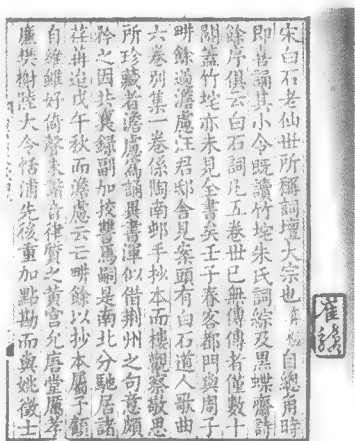 宋白石老仙世所稱詞壇大宗也自總角時
即喜誦其小令既讀竹垞朱氏詞綜及黑蝶齋詩
餘序俱云白石詞凡五卷世已無傳傳者僅數十
闋蓋竹垞亦未見全書矣壬子春客都門與周子
畊餘過澹慮汪君邸舍見案頭有白石道人歌曲
六卷別集一卷係陶南邨手抄本而樓觀察敬思
所珍藏者澹慮爲誦異書渾似借荆州之句意頗
矜之因共錄副加挍讐焉嗣是南北分馳居諸
荏苒迨戊午秋而澹慮云亡畊餘以抄本屬予顧
自維雖好倚聲未諳音律質之黃宮允唐堂厲孝
廉樊榭陸大令恬浦先後重加點勘而與姚徵士